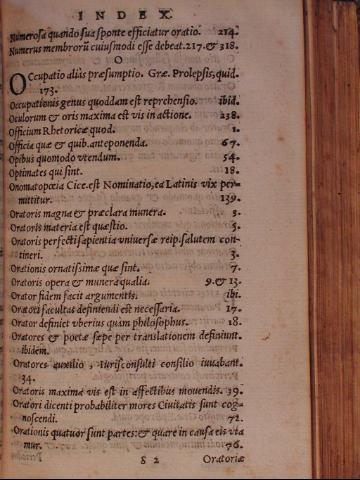 INDEX.
Numerosa quando sua sponte efficiatur oratio. 214.
Numerus membrorũ cuiusmodi esse debeat. 217. & 318.
O
Occupatio aliàs præsumptio. Græ. Prolepsis, quid.
173.
Occupationis genus quoddam est reprehensio. ibid.
Oculorum & oris maxima est vis in actione. 238.
Officium Rhetoricæ quod. 1.
Officia quæ & quib. anteponenda. 67.
Opibus quomodo vtendum. 54.
Optimates qui sint. 18.
Onomatopœia Cice. est Nominatio, ea Latinis vix per-
mittitur. 139.
Oratoris magna & præclara munera. 3.
Oratoris materia est quæstio. 5.
Oratoris perfecti sapientia vniuersæ reip. salutem con-
tineri. 3.
Orationis ornatissimæ quæ sint. 7.
Oratoris opera & munera qualia. 9. & 13.
Orator fidem facit argumentis. ibi.
Oratori facultas definiendi est necessaria. 17.
Orator definiet vberius quàm philosophus. 18.
Oratores & poetæ sæpe per translationem definiunt.
ibidem.
Oratores auxilio, Iurisconsulti consilio iuuabant.
34.
Oratoris maxima vis est in affectibus mouendis. 39.
Oratori dicenti probabiliter mores Ciuitatis sunt cog-
noscendi. 72.
Orationis quatuor sunt partes: & quare in causa eis vta
mur. 76.
S 2 Oratoriæ